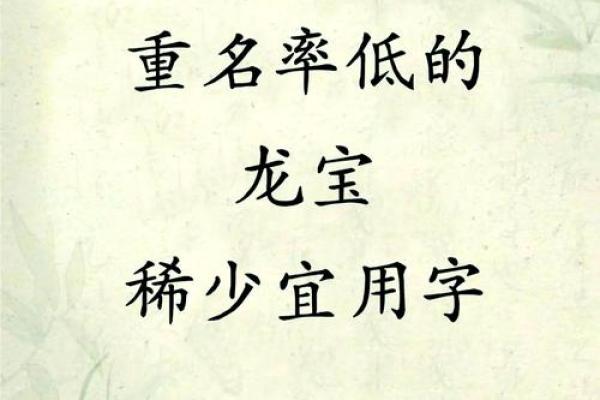 重名率低的
龙宝
稀少宜用字